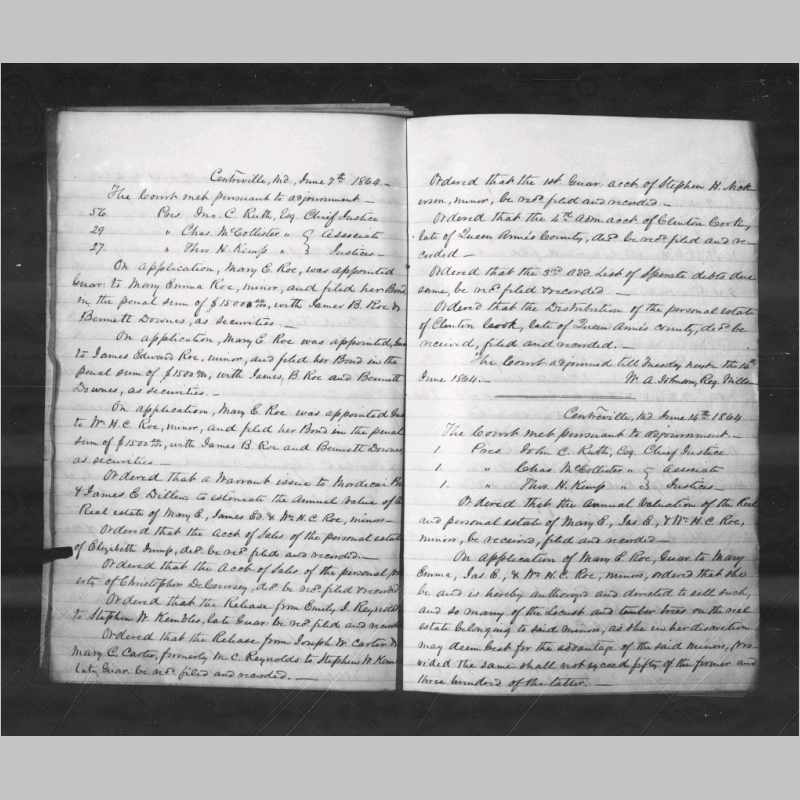 Centreville, Md, June 7th 1864.—
The Court met pursuant to adjournment—
56 Pres Jno. C. Ruth, Esq. Chief Justice
29 " Chas. McCollister " } Associate
27. " Thos. H. Kemp " } Justices—
On application, Mary E. Roe, was appointed
Guar: to Mary Emma Roe, minor, and filed her Bond
in the penal sum of $1500, with James B. Roe &
Bennett Downes, as securities.—
On application, Mary E. Roe was appointed
to James Edward Roe, minor, and filed her Bond in the
penal sum of $1500, with James, B. Roe and Bennett
Downes, as securities.—
On application, Mary E. Roe was appointed
to Wm H. C. Roe, minor, and filed her Bond in the penal
sum of $1500, with James B. Roe and Bennett Downes
as securities—
Ordered that a Warrant issue to Mordecai
& James E. Dillen to estimate the Annual Value of
Real estate of Mary E, James Ed. & Wm H. C. Roe, minors—
Ordered that the acct of Sales of the personal estate
of Elizabeth decd be recd filed and recorded.—
Ordered that the a cct of Sales of the personal
of Christopher DeCoursey, decd be recd filed &
Ordered that the Release from Emily J.
to Stephen W. Kembles, late Guar: be recd filed and
Ordered that the Release from Joseph W. Carter &
Mary C. Carter, formerly M. C. Reynolds to Stephen W.
late Guar. be recd filed and recorded.—
Ordered that the 1st Guar acct of Stephen H. Nick
erson, minor, be recd filed and recorded—
Ordered that the 4th Adm acct of Clinton Cook,
late of Queen Anne's County, decd be recd filed and re-
corded—
Ordered that the 3rd Add List of Sperate debts due
same, be recd filed & recorded—
Ordered that the Distribution of the personal estate
of Clinton Cook, late of Queen Anne's county, decd be
received, filed and recorded.—
The Court adjourned till Tuesday next the 14th
June 1864.— W. A. Johnson, Reg. Wills
Centreville, Md June 14th 1864
The Court met pursuant to adjournment—
1. Pres John C. Ruth, Esq. Chief Justice
1. " Chas McCollister " } Associate
1. " Thos. H. Kemp " } Justices—
Ordered that the annual Valuation of the Real
and personal estate of Mary E, Jas E, & Wm H. C. Roe,
minors, be received, filed and recorded—
On application of Mary E. Roe, Guar to Mary
Emma, Jas E, & Wm H. C. Roe, minors, ordered that she
be and is hereby authorized and directed to sell such,
and so many of the Locust and timber trees on the real
estate belonging to said minors, as she in her discretion
may deem best for the advantage of the said minors, Pro-
vided the same shall not exceed fifty of the former and
three hundred of the latter.—